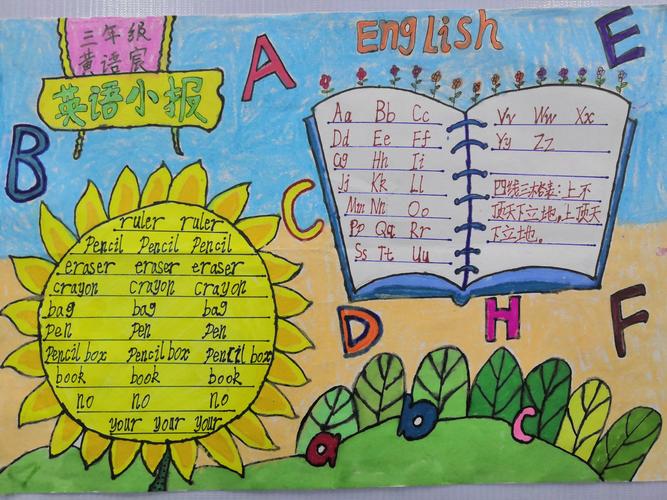 三年级
黄语宸
英语小报
English
A
E
B
C
D
H
F
Aa Bb Cc
Dd Ee Ff
Gg Hh Ii
Jj Kk Ll
Mm Nn Oo
Pp Qq Rr
Ss Tt Uu
Vv Ww Xx
Yy Zz
四线三格表：上不
顶天下立地，上顶天
下立地。
ruler ruler
Pencil Pencil Pencil
eraser eraser eraser
crayon crayon crayon
bag bag bag
Pen Pen Pen
Pencil box Pencil box Pencil box
book book book
no no no
your your your
a b c